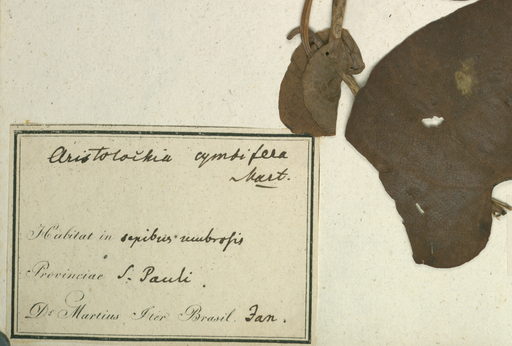 Aristolochia cymbifera
Mart.
Habitat in sepibus umbrosis
Provinciae S. Pauli.
Dr Martius Iter Brasil. Jan.